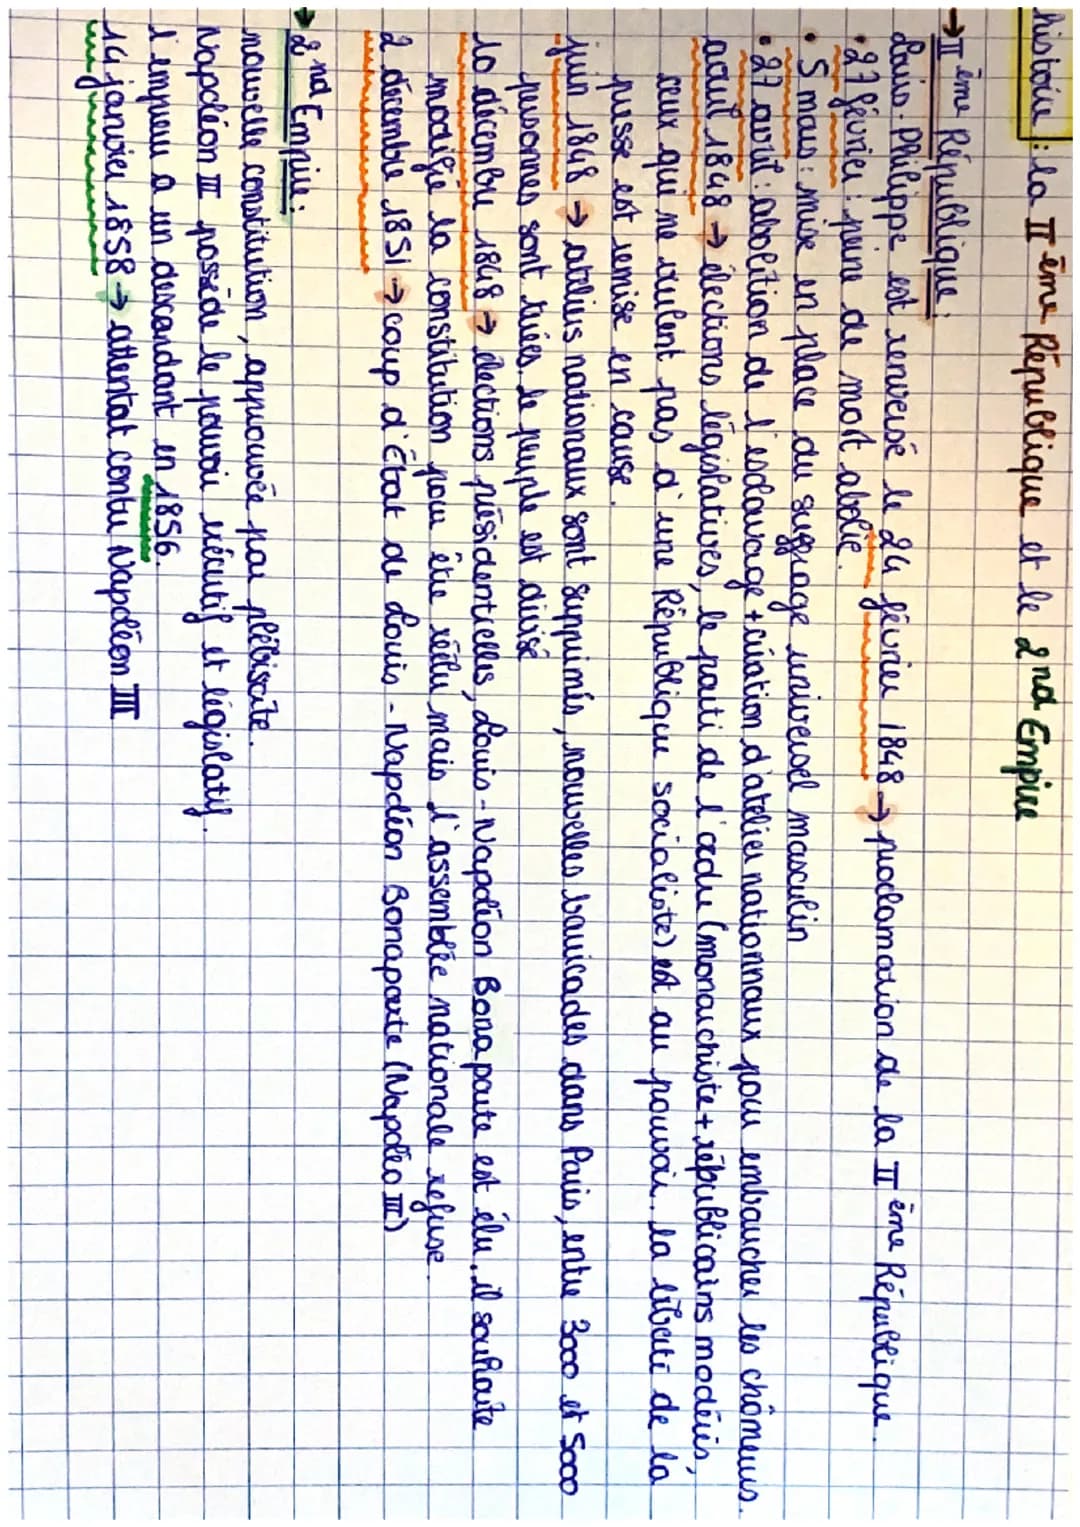 histoire : la IIème République et le 2nd Empire
→ IIème République :
Louis-Philippe est renversé le 24 février 1848 → proclamation de la IIème République.
• 27 février : peine de mort abolie.
• 5 mars : mise en place du suffrage universel masculin
• 27 avril : abolition de l'esclavage + création d'atelier nationnaux pour embaucher les chômeurs.
avril 1848 → élections législatives, le parti de l'ordre (monarchiste + républicains modérés,
ceux qui ne veulent pas d'une République socialiste) est au pouvoir. la liberté de la
presse est remise en cause.
juin 1848 → ateliers nationaux sont supprimés, nouvelles barricades dans Paris, entre 3000 et 5000
personnes sont tuées le peuple est divisé
10 décembre 1848 → élections présidentielles, Louis-Napoléon Bonaparte est élu, il souhaite
modifié la constitution pour être réélu mais l'assemblée nationale refuse.
2 décembre 1851 → coup d'État de Louis-Napoléon Bonaparte (Napoléo III)
→ 2nd Empire :
nouvelle constitution, approuvée par plébiscite.
Napoléon III possède le pouvoir exécutif et législatif.
l'empereur a un descandant en 1856.
14 janvier 1858 → attentat contre Napoléon III